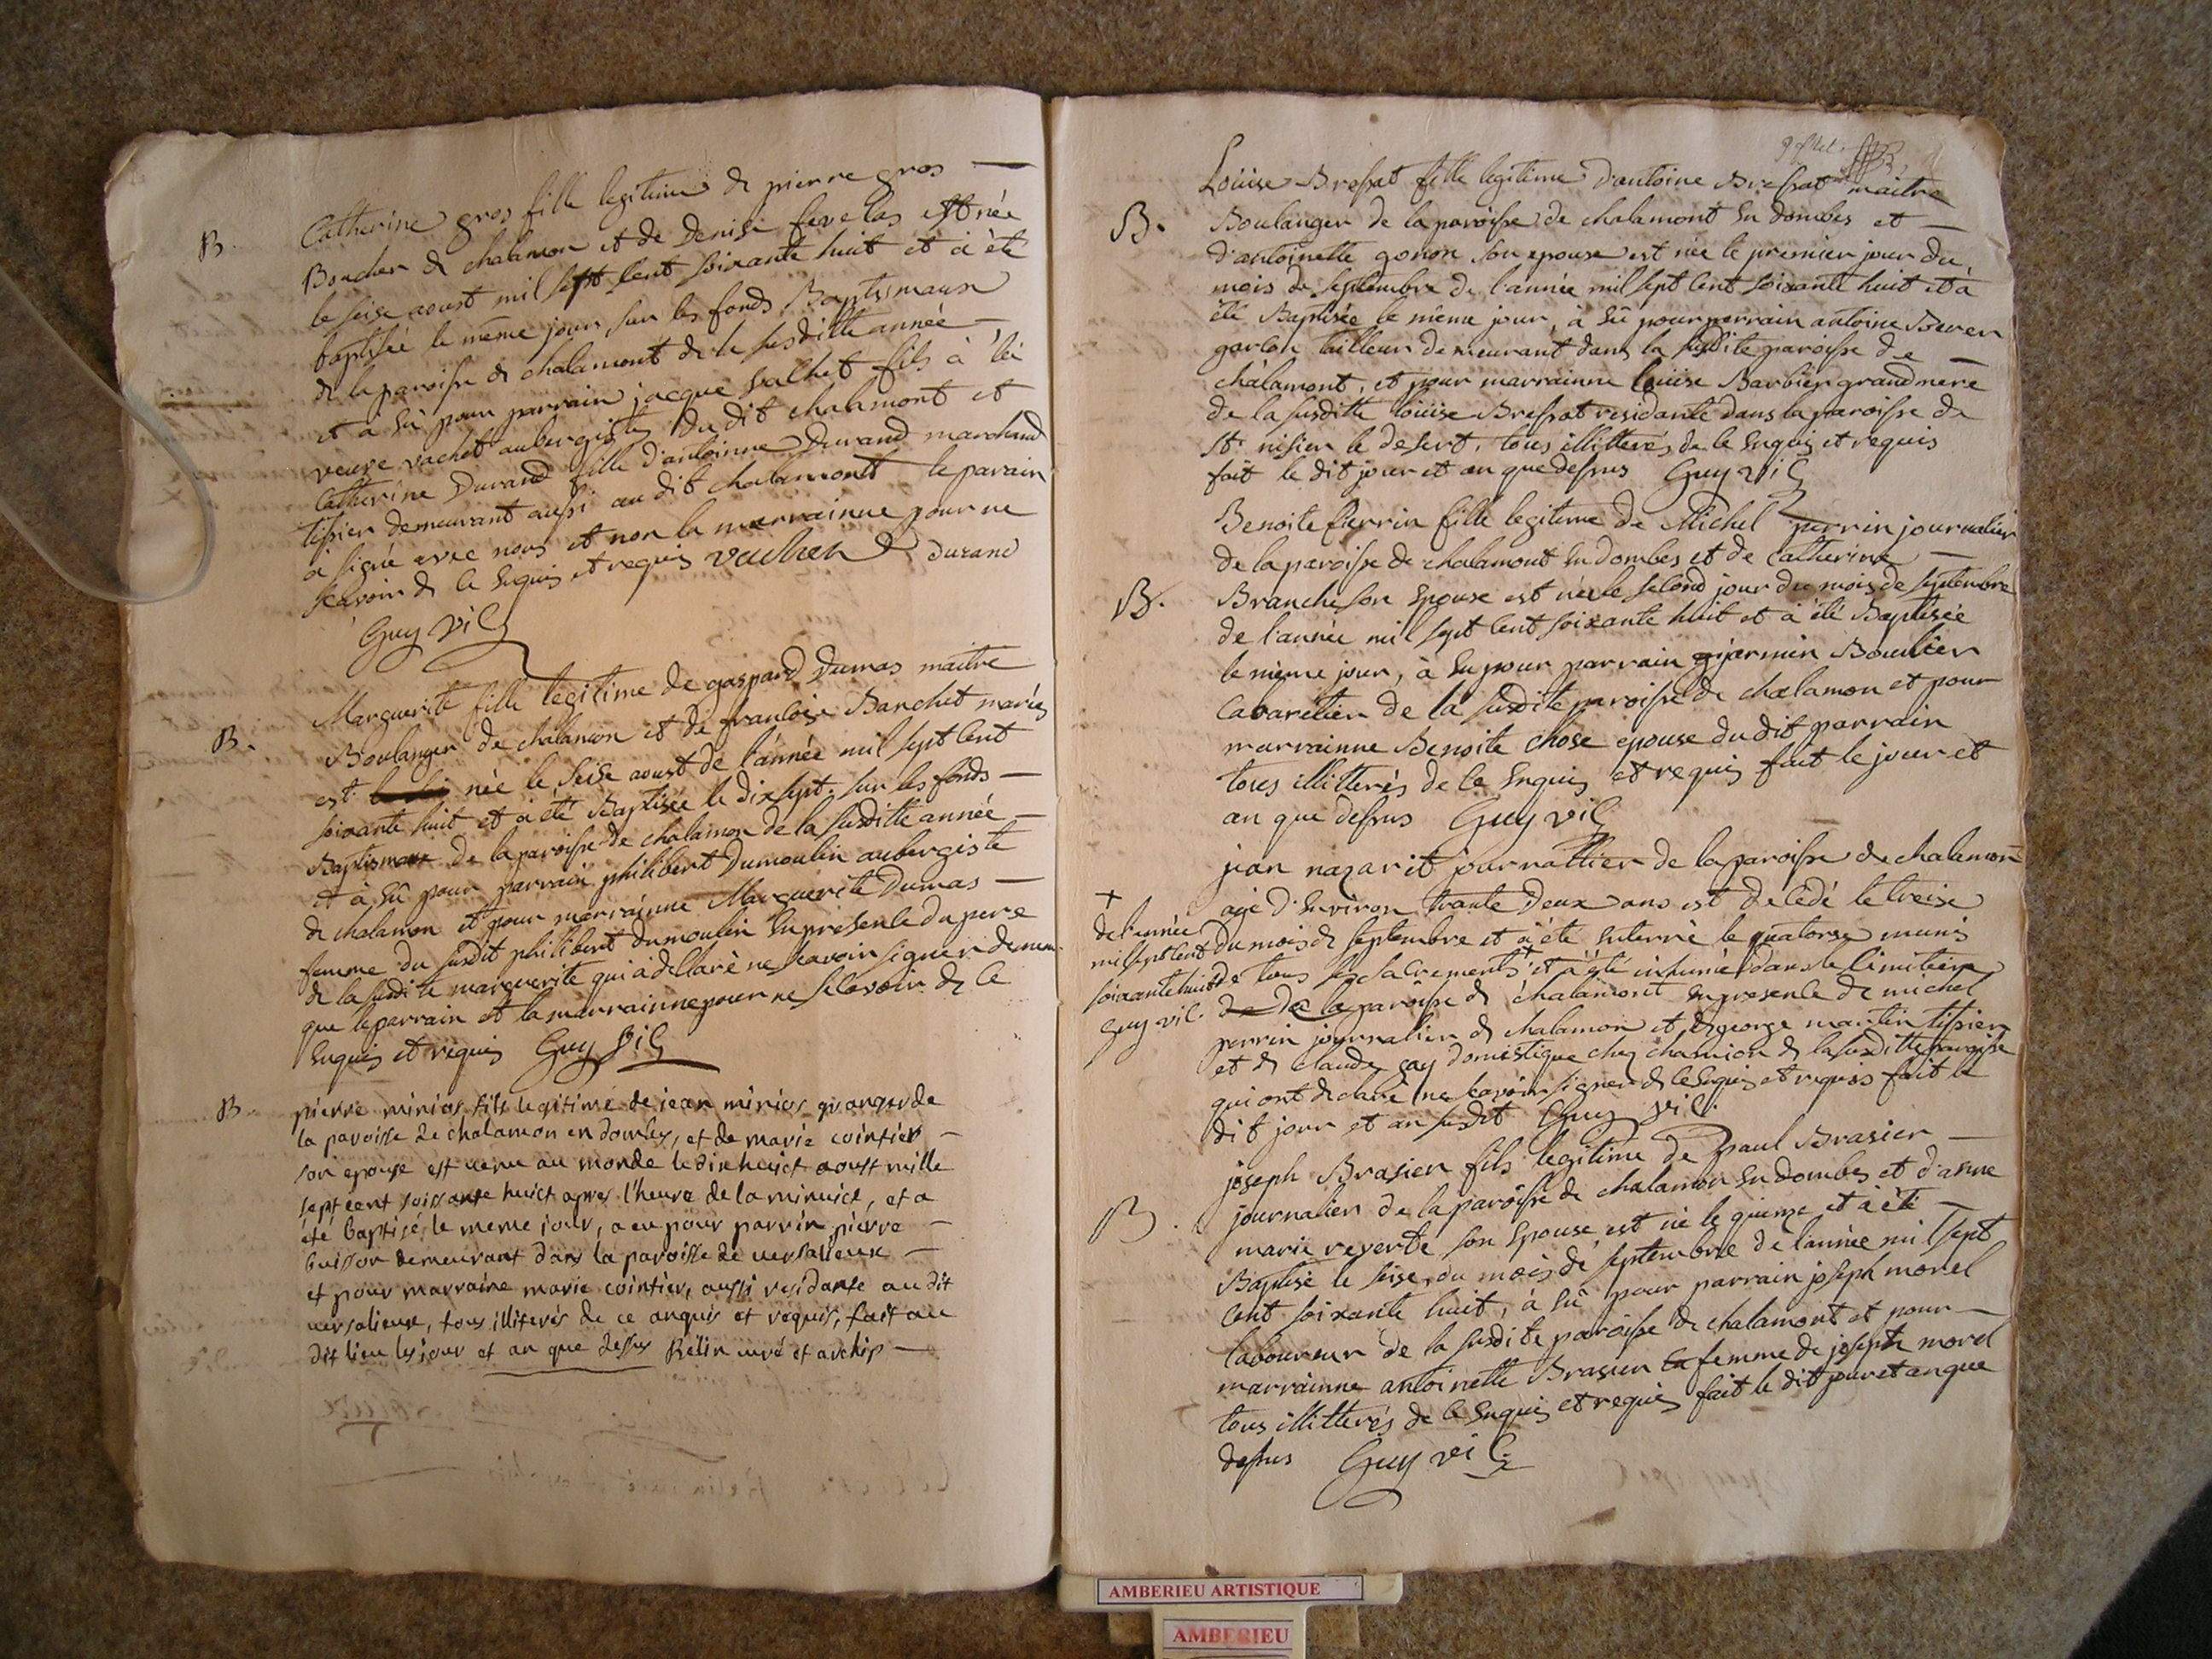 B.
Catherine gros fille legitime de pierre gros —
Boucher de chalamon et de Denise favelas est née
le seise aoust mil sept cent soixante huit et à été
baptisée le même jour sur les fonds Baptismaux
de la paroisse de chalamont de la susditte année —
et à eû pour parrain jacque vachet fils à
veuve vachet aubergiste du dit chalamont et
Catherine Durand fille d'antoinne Durand marchand
tissier demeurant aussi au dit chalamontt le parain
à signé avec nous et non la marrainne pour ne
scavoir de ce enquis et requis vachet durand
Guy vic
B.
Marguerite fille legitime de gaspard Dumas maitre
Boulanger de chalamon et de francoise Banchet mariés
est née le seise aoust de l'année mil sept cent
soixante huit et à été Baptisée le dixsept sur les fonds —
Baptismaux de la paroisse de chalamon de la susditte année —
et à eû pour parrain philibert Dumoulin aubergiste
de chalamon et pour marrainne Marguerite Dumas —
femme du susdit philibert dumoulin en presence du pere
de la susdite marguerite qui à declaré ne scavoir signer de meme
que le parrain et la marrainne pour ne scavoir de ce
enquis et requis Guy Vic
B.
pierre minios fils legitime de jean minios granger de
la paroisse de chalamon en dombes, et de marie cointier —
son epouse est venu au monde le dixhuict aoust mille
sept cent soissante huict apres l'heure de la minuict, et a
été baptisé le meme jour, a eu pour parrin pierre —
buisson demeurant dans la paroisse de versalieux —
et pour marraine marie cointier, aussi residante au dit
versalieux, tous illiterés de ce anquis et requis, fait au
dit lieu les jour et an que dessus Relin curé et archip —
B.
Loüise Bressat fille legitime d'antoine Bressat maitre
Boulanger de la paroisse de chalamont en dombes et —
d'antoinette gonon son epouse est née le premier jour du
mois de septembre de l'année mil sept cent soixante huit et à
été Baptisée le même jour, à eû pour parrain antoine Buver
garcon tailleur demeurant dans la susdite paroisse de —
châlamont, et pour marrainne loüise Barbier grand mere
de la susditte loüise Bressat residante dans la paroisse de
st. nisier le desert, tous illitterés de ce enquis et requis
fait le dit jour et an que dessus Guy vic
B.
Benoite Perrin fille legitime de Michel perrin journalier
de la paroisse de chalamont en dombes et de Catherine —
Branche son epouse est née le second jour du mois de septembre
de l'année mil sept cent soixante huit et à été Baptisée
le même jour, à eu pour parrain germin Boulier
cabaretier de la susdite paroisse de chalamon et pour
marrainne Benoite chose epouse du dit parrain
tous illitterés de ce enquis et requis fait le jour et
an que dessus Guy vic
jean nazarit journallier de la paroisse de chalamon
agé d'environ trante deux ans est decedé le treise
du mois de septembre et à été enterré le quatorse munis
de tous les sacrements + et à été inhumé dans le cimitiere
de la paroisse de chalamont en presence de michel
perrin journalier de chalamon et de george martin tissier
et de claude gay domestique chez chamion de la susditte paroisse
qui ont declaré ne scavoir signer de ce enquis et requis fait le
dit jour et an susdit Guy vic
+
de l'année
mil sept cent
soixante huit
Guy vic.
B.
joseph Brasier fils legitime de paul Brasier —
journalier de la paroisse de chalamon en dombes et d'anne
marie reverte son epouse est né le quinze et à été —
Baptisé le seise du mois de septembre de l'année mil sept
cent soixante huit, à eû pour parrain joseph morel
laboureur de la susdite paroisse de chalamont et pour —
marrainne antoinette Brasier femme de joseph morel
tous illitterés de ce enquis et requis fait le dit jour et an que
dessus Guy vic
AMBERIEU ARTISTIQUE
AMBERIEU